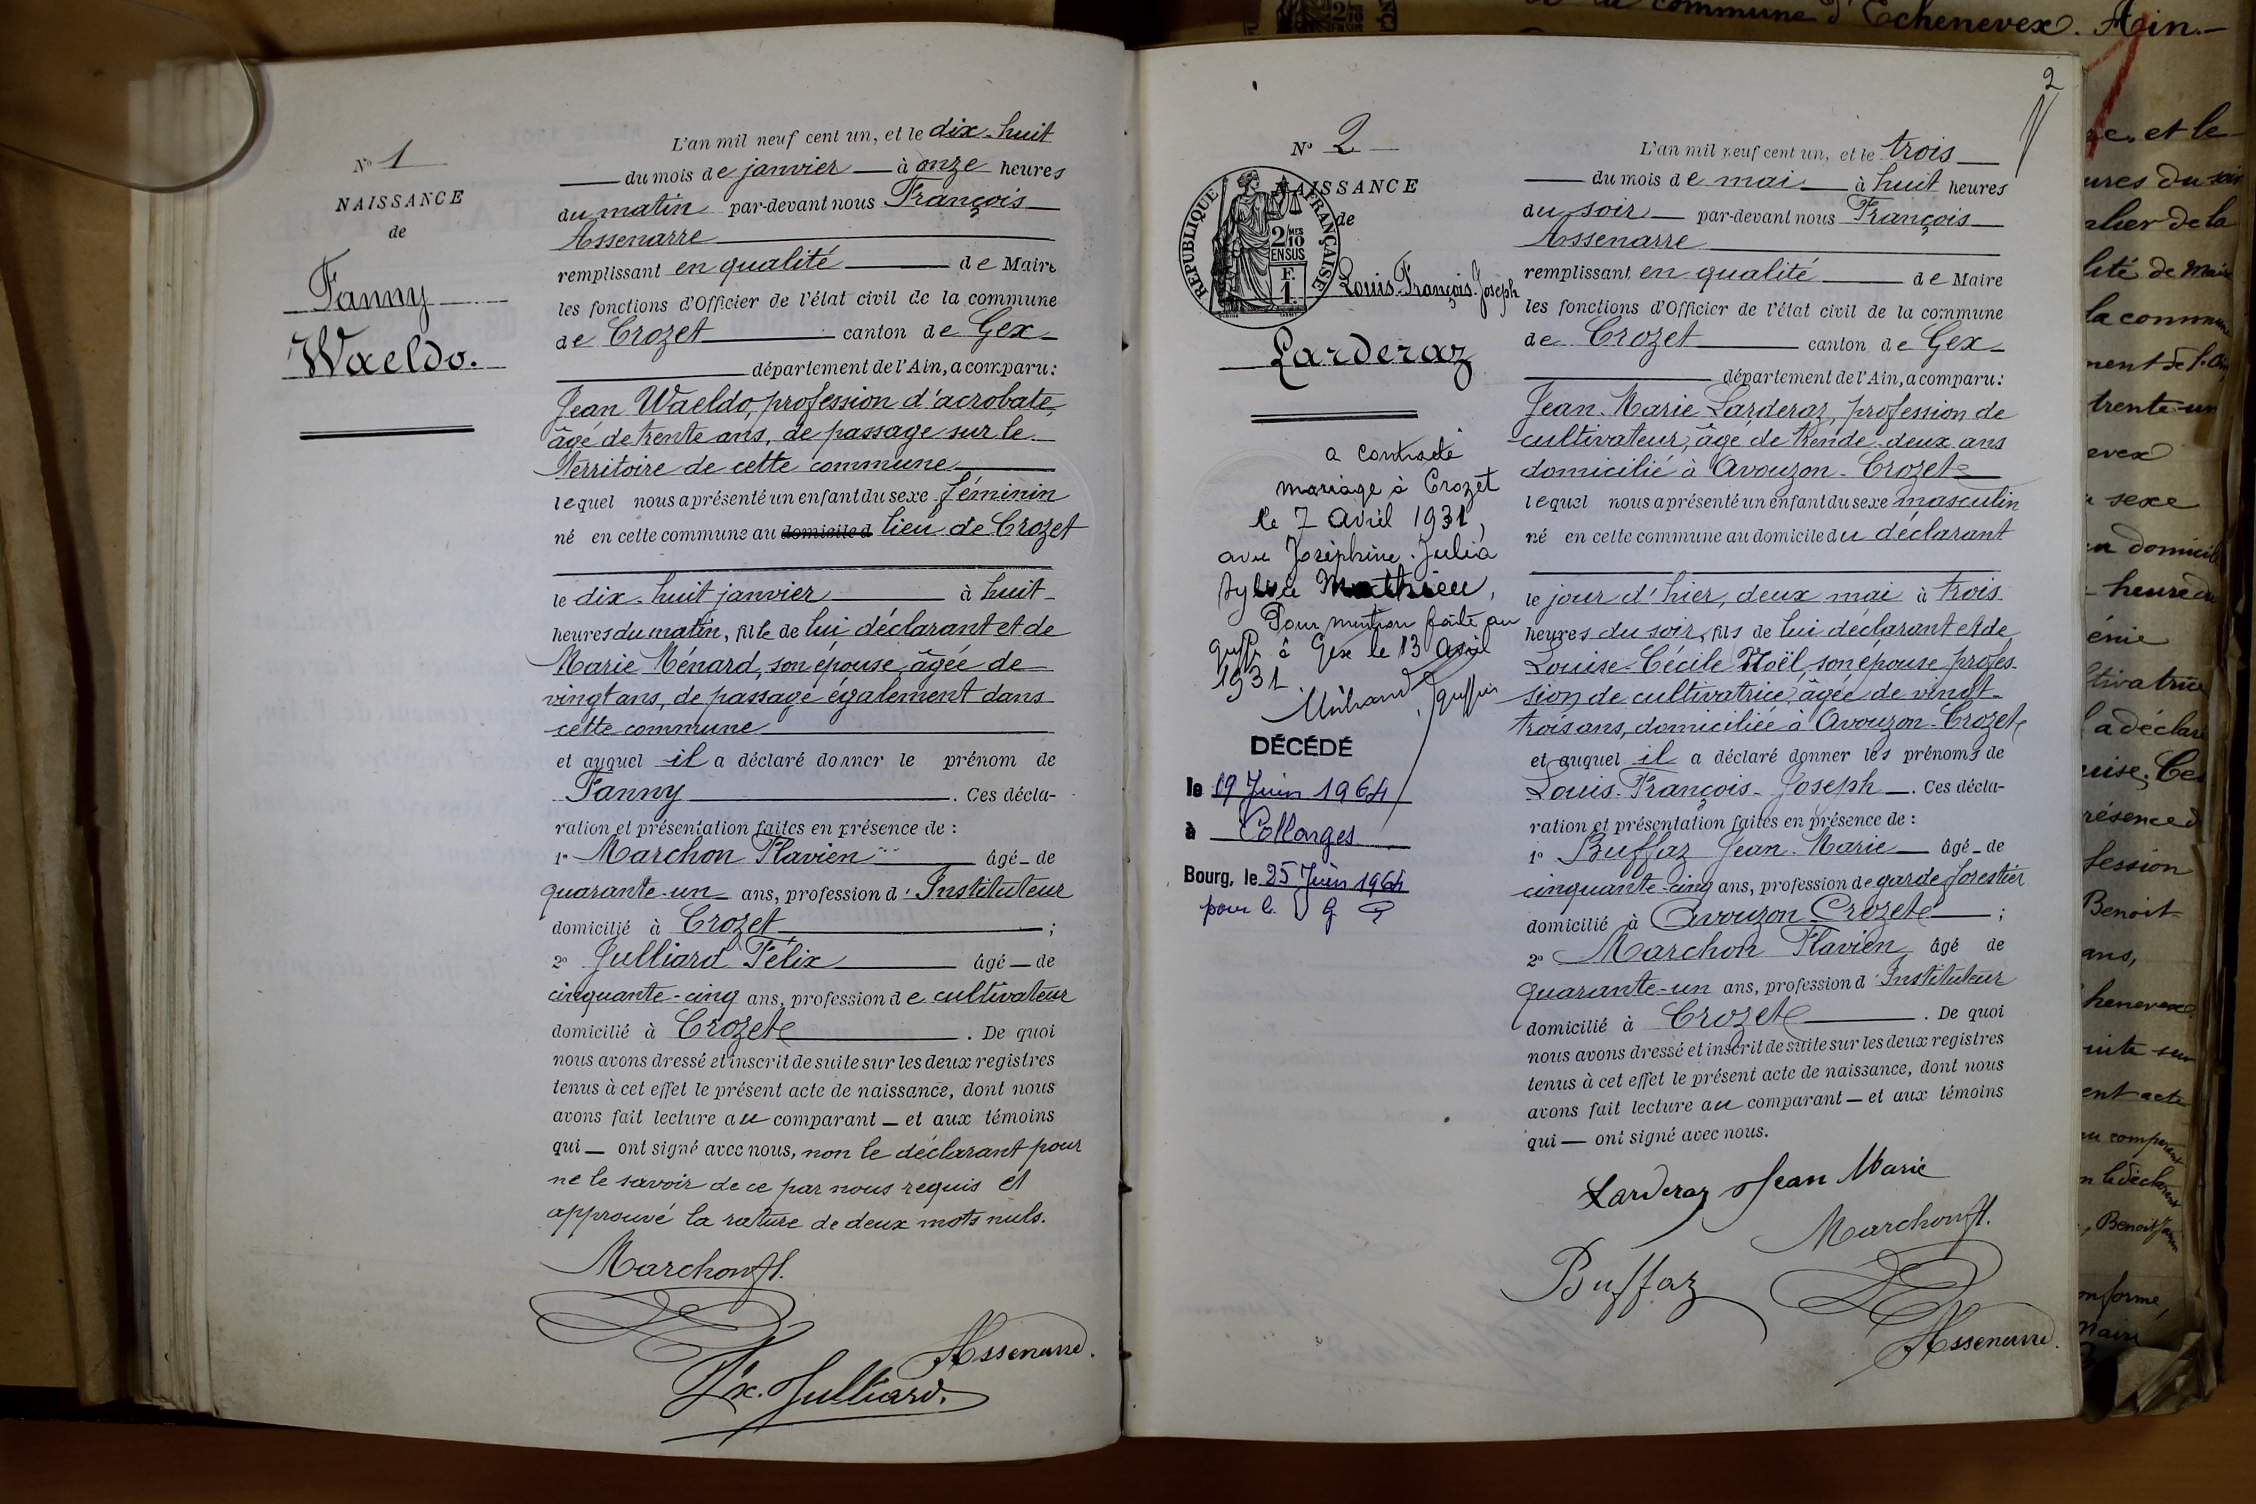 N° 1
NAISSANCE
de
Fanny
Waeldo.
L'an mil neuf cent un, et le dix-huit
du mois de janvier à onze heures
du matin par-devant nous François
Assenarre
remplissant en qualité de Maire
les fonctions d'Officier de l'état civil de la commune
de Crozet canton de Gex
département de l'Ain, a comparu:
Jean Waeldo, profession d'acrobate,
âgé de trente ans, de passage sur le
territoire de cette commune
lequel nous a présenté un enfant du sexe féminin
né en cette commune au domicile d lieu de Crozet
le dix-huit janvier à huit
heures du matin, fille de lui déclarant et de
Marie Ménard, son épouse âgée de
vingt ans, de passage également dans
cette commune
et auquel il a déclaré donner le prénom de
Fanny. Ces décla-
ration et présentation faites en présence de :
1° Marchon Flavien âgé de
quarante-un ans, profession d'Instituteur
domicilié à Crozet ;
2° Julliard Félix âgé de
cinquante-cinq ans, profession de cultivateur
domicilié à Crozet. De quoi
nous avons dressé et inscrit de suite sur les deux registres
tenus à cet effet le présent acte de naissance, dont nous
avons fait lecture au comparant et aux témoins
qui ont signé avec nous, non le déclarant pour
ne le savoir de ce par nous requis et
approuvé la rature de deux mots nuls.
Marchon fl.
Assenarre.
Fx. Julliard.
2
N° 2
NAISSANCE
de
RÉPUBLIQUE FRANÇAISE
2 MES
10
EN SUS
F.
1.
Louis-François-Joseph
Larderaz
a contracté
mariage à Crozet
le 7 Avril 1931,
avec Joséphine Julia
Sylvie Mathieu,
Pour mention faite au
greffe à Gex le 13 Avril
1931.
greffier
DÉCÉDÉ
le 19 Juin 1964
à Collonges
Bourg, le 25 Juin 1964
pour le
L'an mil neuf cent un, et le trois
du mois de mai à huit heures
du soir par-devant nous François
Assenarre
remplissant en qualité de Maire
les fonctions d'Officier de l'état civil de la commune
de Crozet canton de Gex
département de l'Ain, a comparu:
Jean-Marie Larderaz, profession de
cultivateur, âgé de trende-deux ans
domicilié à Avouzon-Crozet
lequel nous a présenté un enfant du sexe masculin
né en cette commune au domicile du déclarant
le jour d'hier, deux mai à trois
heures du soir, fils de lui déclarant et de
Louise-Cécile Noël, son épouse profes-
sion de cultivatrice, âgée de vingt-
trois ans, domiciliée à Avouzon-Crozet
et auquel il a déclaré donner les prénoms de
Louis-François-Joseph. Ces décla-
ration et présentation faites en présence de :
1° Buffaz Jean-Marie âgé de
cinquante-cinq ans, profession de garde forestier
domicilié à Avouzon-Crozet ;
2° Marchon Flavien âgé de
quarante-un ans, profession d'Instituteur
domicilié à Crozet. De quoi
nous avons dressé et inscrit de suite sur les deux registres
tenus à cet effet le présent acte de naissance, dont nous
avons fait lecture au comparant et aux témoins
qui ont signé avec nous.
Larderaz Jean Marie
Marchon fl.
Buffaz
Assenarre.
commune d'Echenevex. Ain.
et le
ures du soir
alier de la
lité de Maire
la commune
ment de l'Ain
trente-un
evex
sexe
domicile
heure du
énie
ltivatrice
a déclaré
uise. Ces
résence d
fession
Benoit
ans,
henevex
uite sur
ent acte
au comparant
n le déclarant
, Benoit
onforme,
Maire